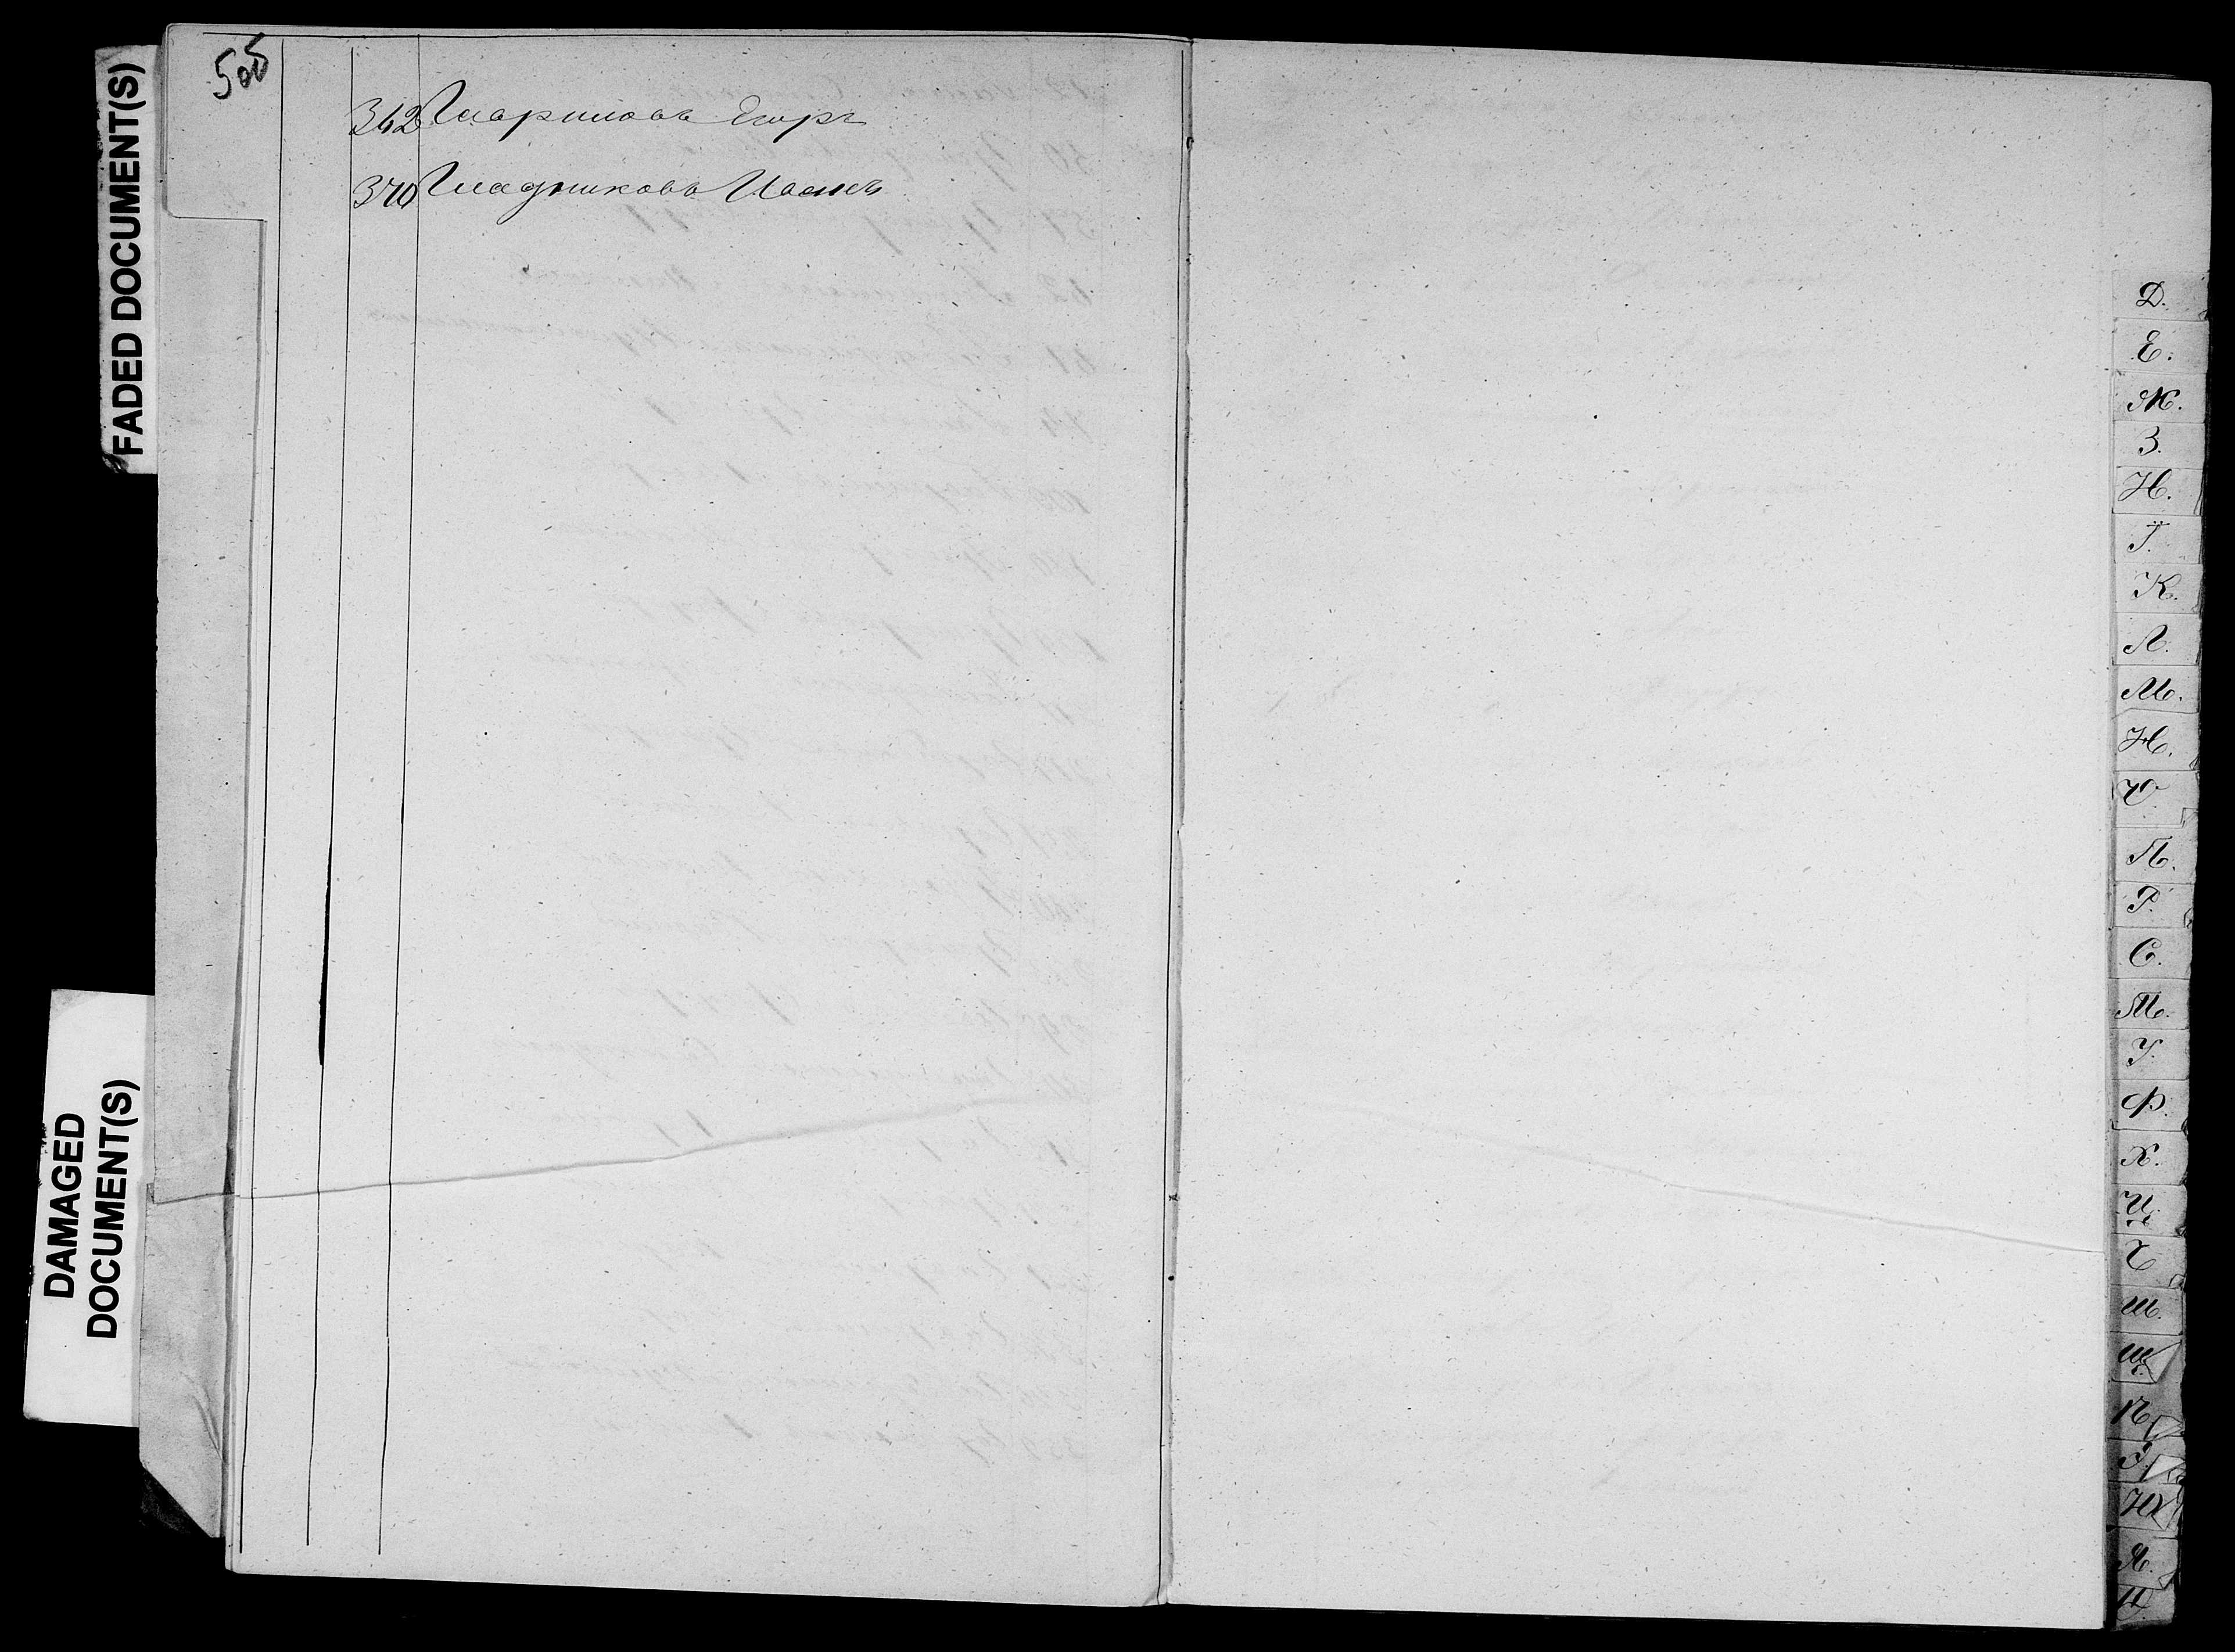 505
342 Гавриловъ Егоръ
370 Гладниковъ Иванъ
FADED DOCUMENT(S)
DAMAGED
DOCUMENT(S)
Д.
Е.
Ж.
З.
И.
І.
К.
Л.
М.
Н.
О.
П.
Р.
С.
Т.
У.
Ф.
Х.
Ц.
Ч
Ш.
Щ.
Ю
Я.